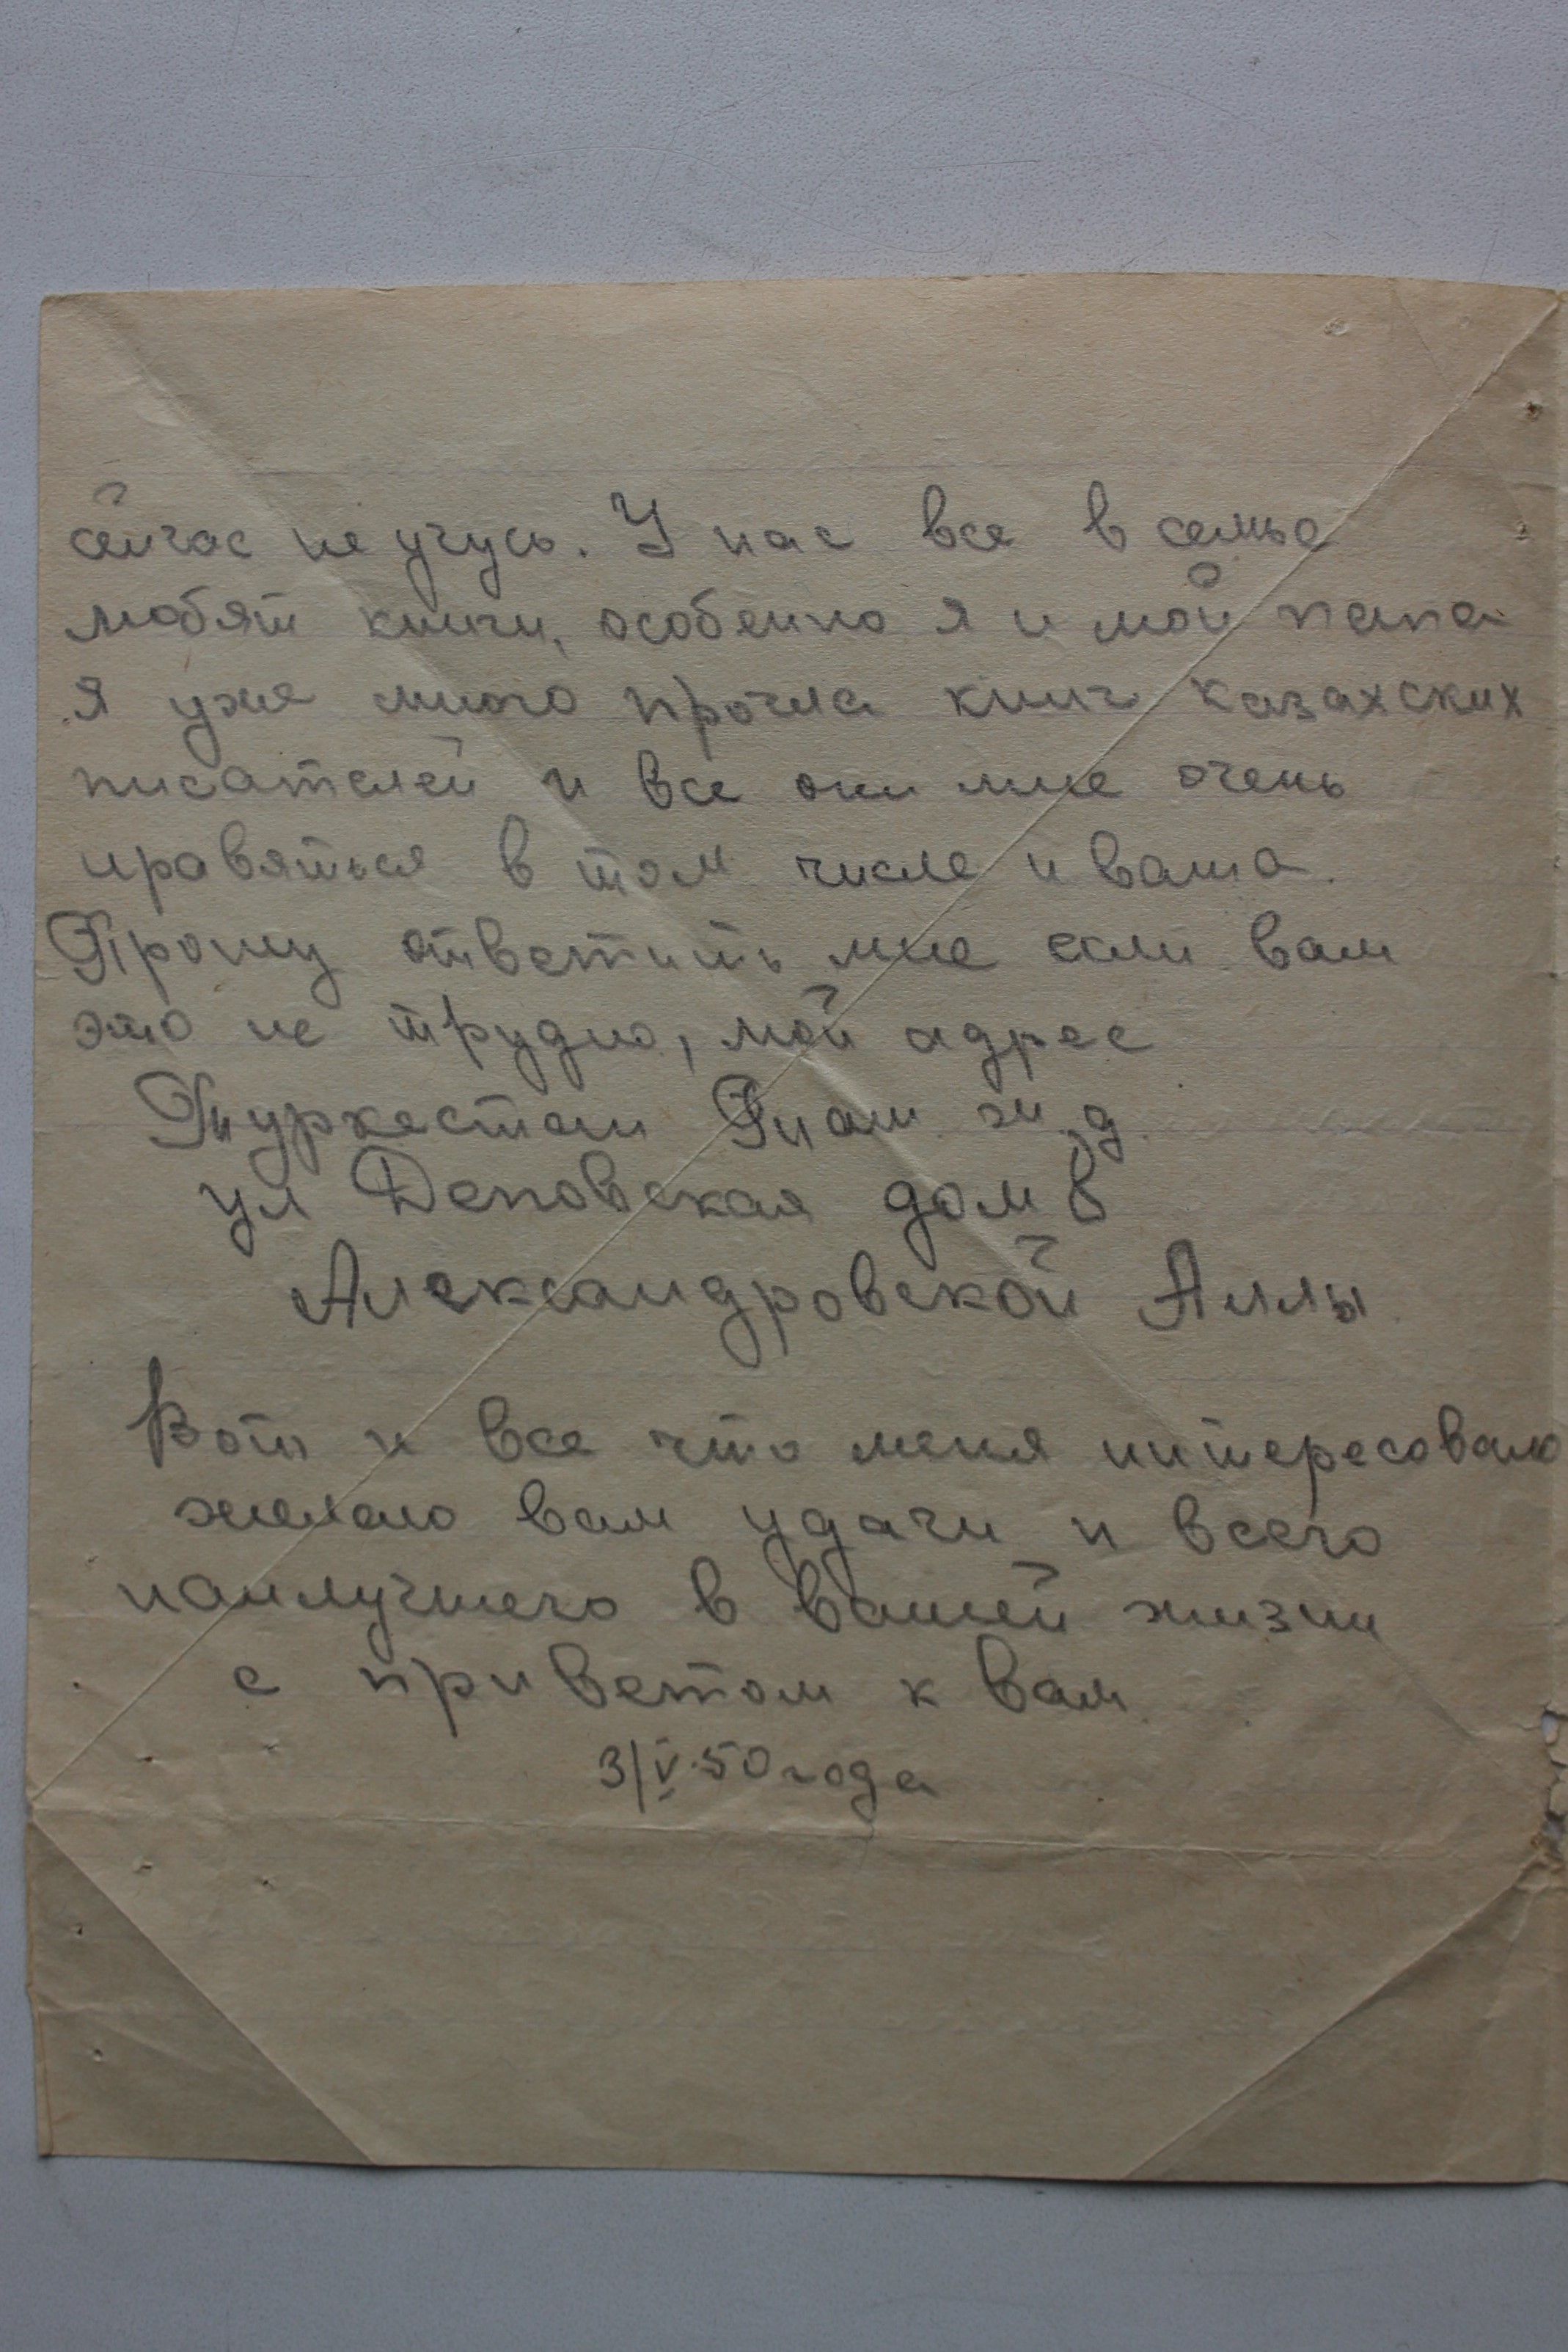 сейчас не учусь. У нас все в семье
любят книги, особенно я и мой папа
Я уже много прочла книг казахских
писателей и все они мне очень
нравяться в том числе и ваша.
Прошу ответить мне если вам
это не трудно, мой адрес
Туркестан Таш. ж.д.
ул Деповская дом 8
Александровской Аллы.
Вот и все что меня интересовало
желаю вам удачи и всего
наилучшего в вашей жизни
с приветом к вам.
3/V.50 года